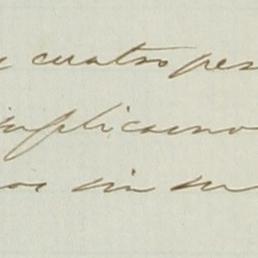 y cuatro pes
suplicamo
os sin m